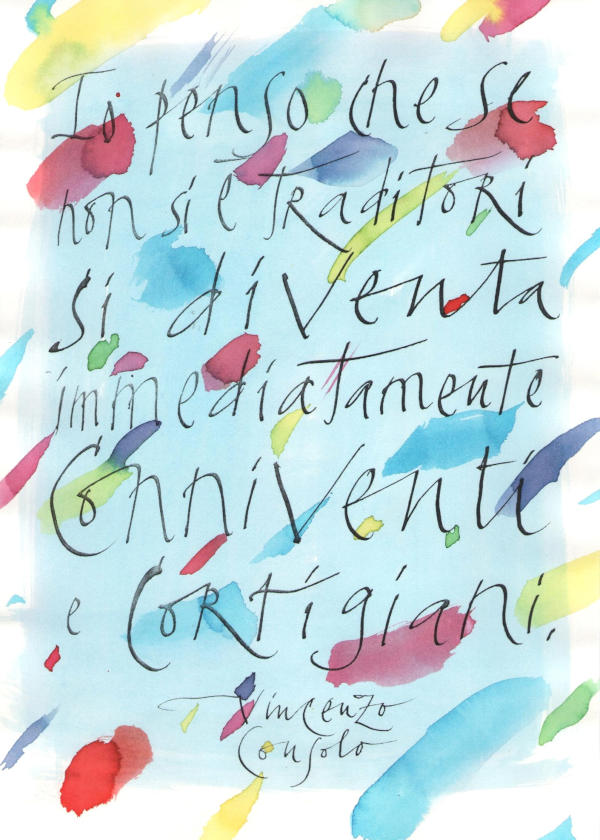 Io penso che se
non si è traditori
si diventa
immediatamente
Conniventi
e Cortigiani.
Vincenzo
Consolo